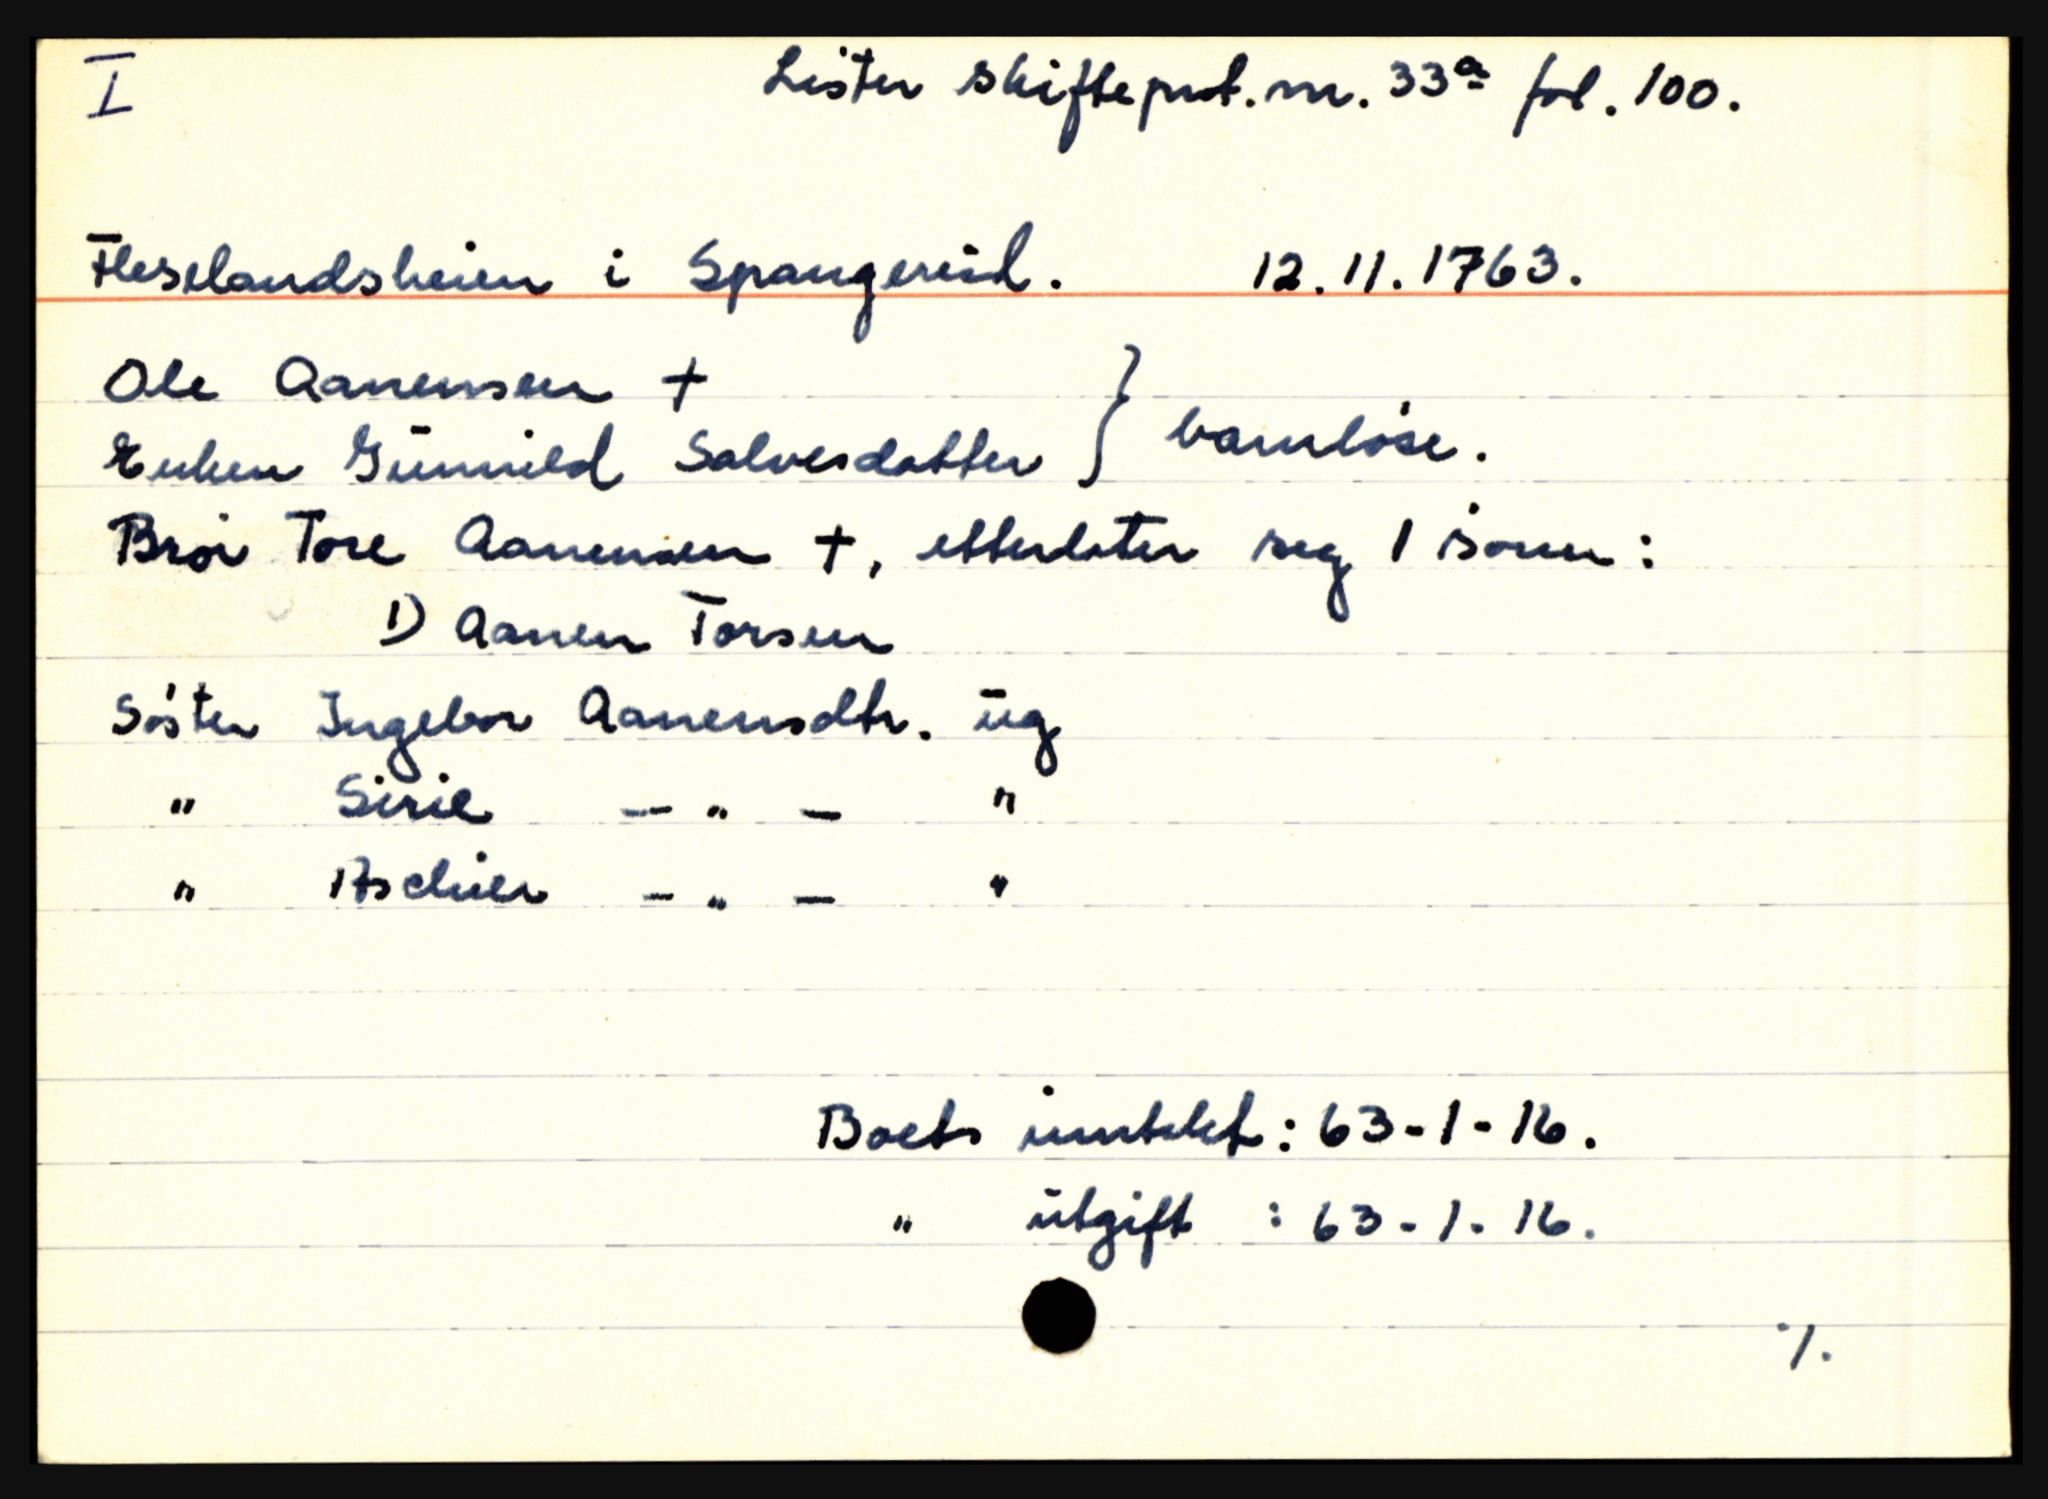 I
Lister skifteprot. nr. 33a fol. 100.
Fleselandsheien i Spangereid. 12.11.1763.
Ole Aanensen + } barnløse.
Enken Gunnild Salvesdatter
Bror Tore Aanensen +, etterlater seg 1 sønn:
1) Aanen Torsen
Søster Ingebor Aanensdtr. ug
" Sirie — " — "
" — " — "
Boets inntekt: 63-1-16.
" utgift : 63-1-16.
./.